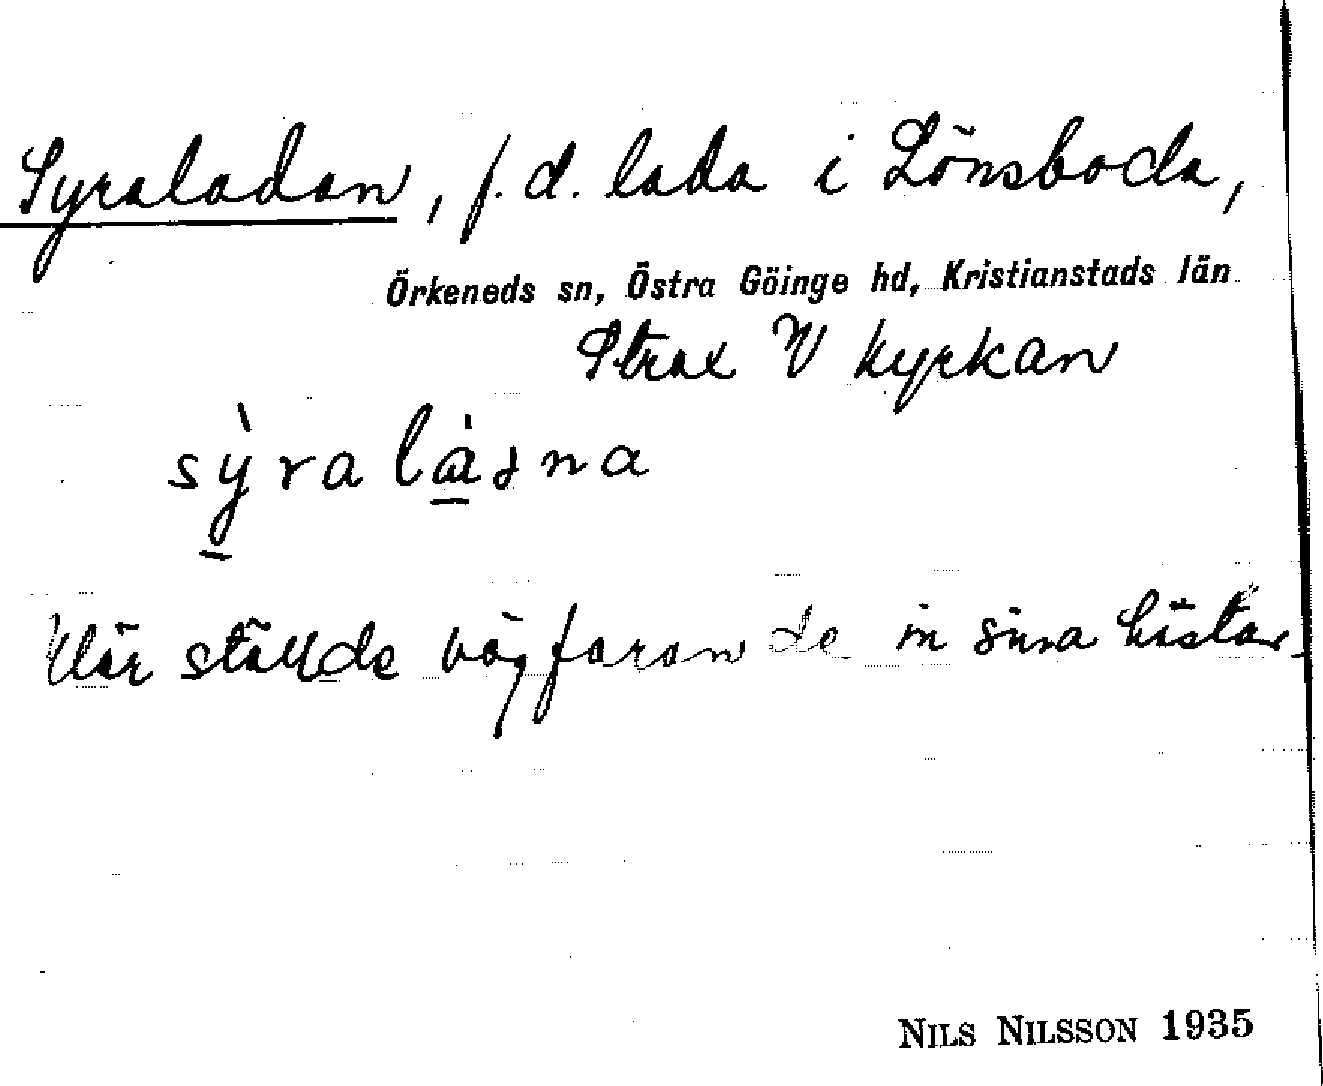 Syraladan, f.d. lada i Lönsboda,
Örkeneds sn, Östra Göinge hd, Kristianstads län
Strax V kyrkan
sỳra la̱̍ɹna
Här ställde vägfarande in sina hästar.
NILS NILSSON 1935